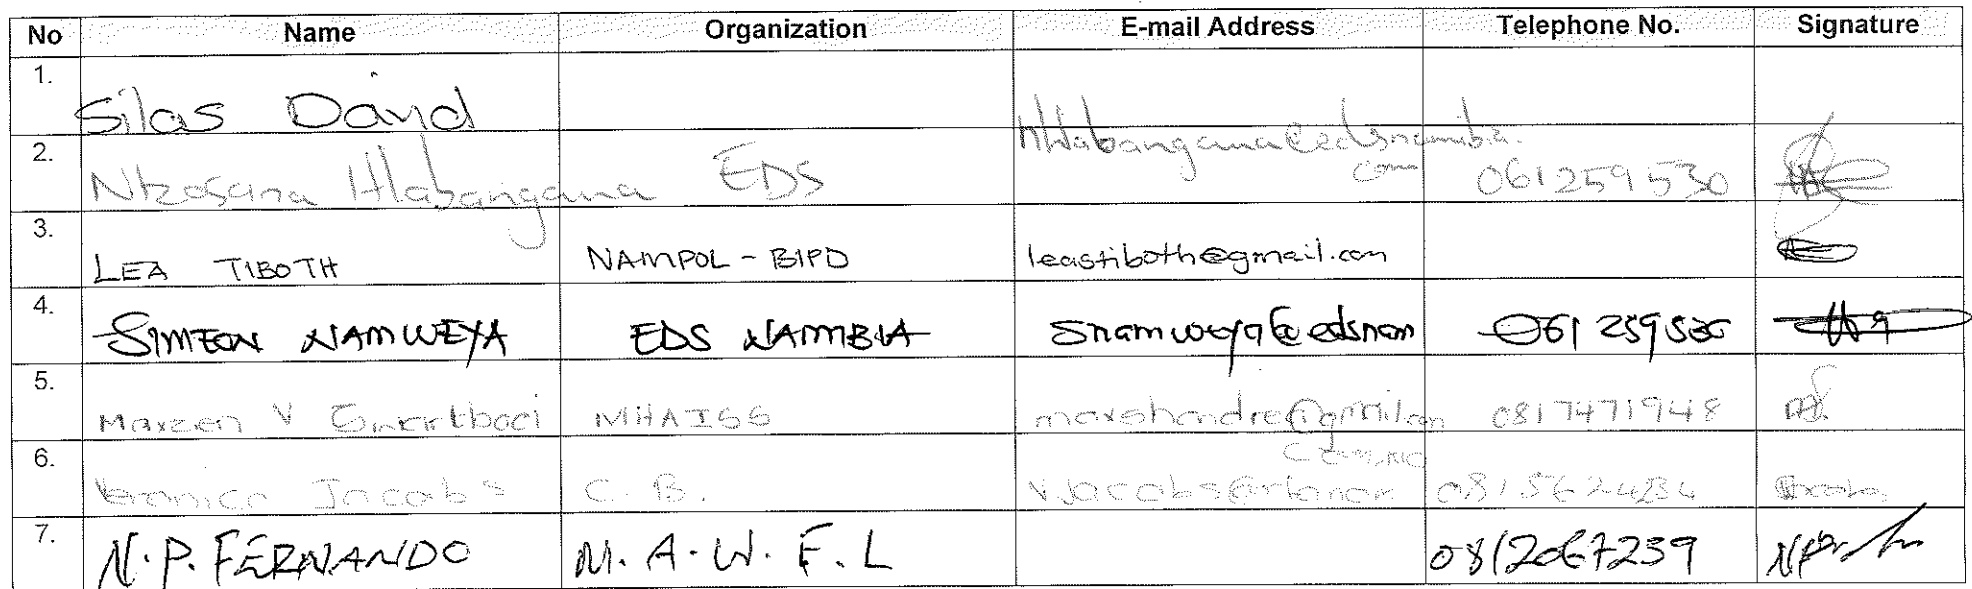 No Name Organization E-mail Address Telephone No. Signature
1. Silas David
2. Nkosana Hlabangana EDS hhlabangana@edsnamibia.com 061259530
3. LEA TIBOTH NAMPOL - BIPD leastiboth@gmail.com
4. SIMEON NAMWEYA EDS NAMIBIA snamweya@edsnam 061 259530
5. Maxzen V MHAISS maxshandre@gmail.com 0817471948
6. Veronica Jacobs C.B. 
7. N.P. FERNANDO M.A.W.F.L 0812067239